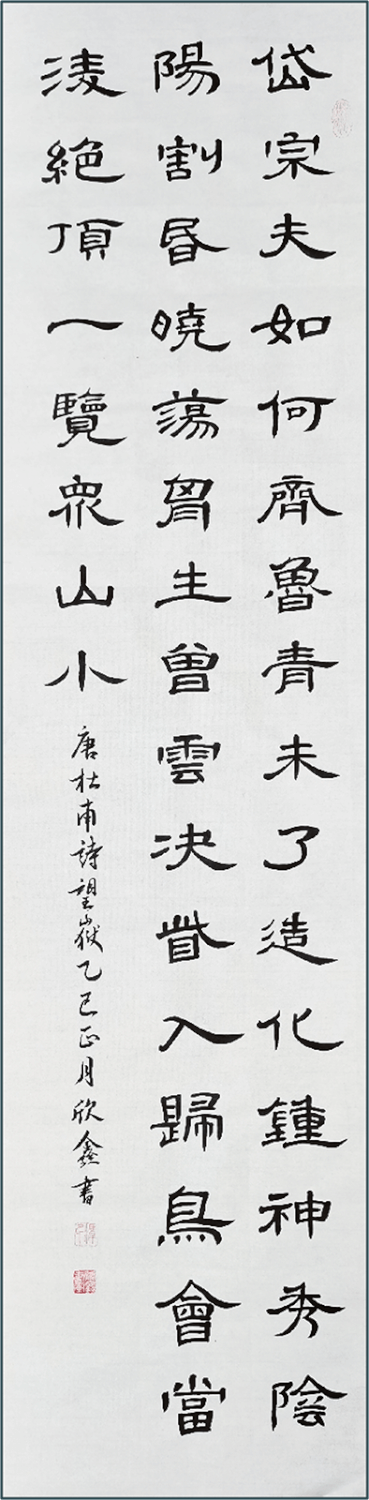 岱宗夫如何齊魯青未了造化鍾神秀陰
陽割昏曉蕩胷生曾雲決眥入歸鳥會當
淩絶頂一覽眾山小
唐杜甫詩望嶽乙巳正月欣鑫書